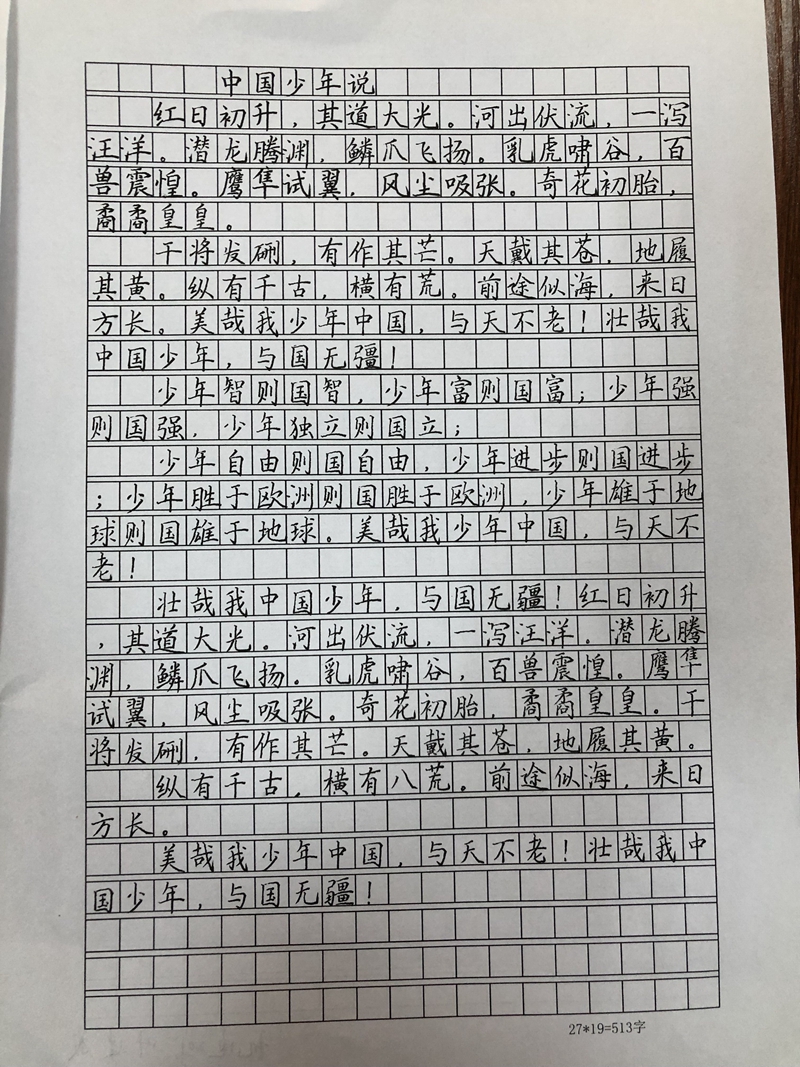 中国少年说
红日初升，其道大光。河出伏流，一泻
汪洋。潜龙腾渊，鳞爪飞扬。乳虎啸谷，百
兽震惶。鹰隼试翼，风尘吸张。奇花初胎，
矞矞皇皇。
干将发硎，有作其芒。天戴其苍，地履
其黄。纵有千古，横有荒。前途似海，来日
方长。美哉我少年中国，与天不老！壮哉我
中国少年，与国无疆！
少年智则国智，少年富则国富；少年强
则国强，少年独立则国立；
少年自由则国自由，少年进步则国进步
；少年胜于欧洲则国胜于欧洲，少年雄于地
球则国雄于地球。美哉我少年中国，与天不
老！
壮哉我中国少年，与国无疆！红日初升
，其道大光。河出伏流，一泻汪洋。潜龙腾
渊，鳞爪飞扬。乳虎啸谷，百兽震惶。鹰隼
试翼，风尘吸张。奇花初胎，矞矞皇皇。干
将发硎，有作其芒。天戴其苍，地履其黄。
纵有千古，横有八荒。前途似海，来日
方长。
美哉我少年中国，与天不老！壮哉我中
国少年，与国无疆！
27*19=513字